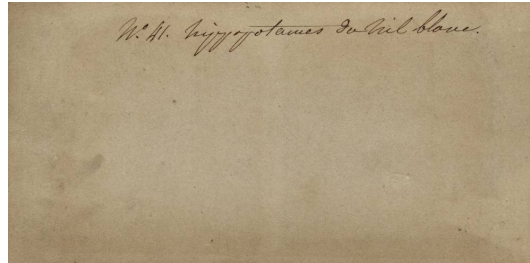 N.º 41. hippopotames du nil blanc.